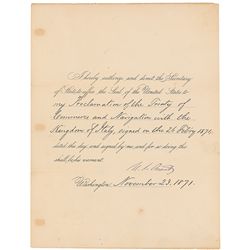 I hereby authorize and direct the Secretary
of State to affix the Seal of the United States to
my Proclamation of the Treaty of
Commerce and Navigation with the
Kingdom of Italy, signed on the 26 Feb'ry 1871,
dated this day, and signed by me, and for so doing this
shall be his warrant.
U. S. Grant
Washington, November 23, 1871.